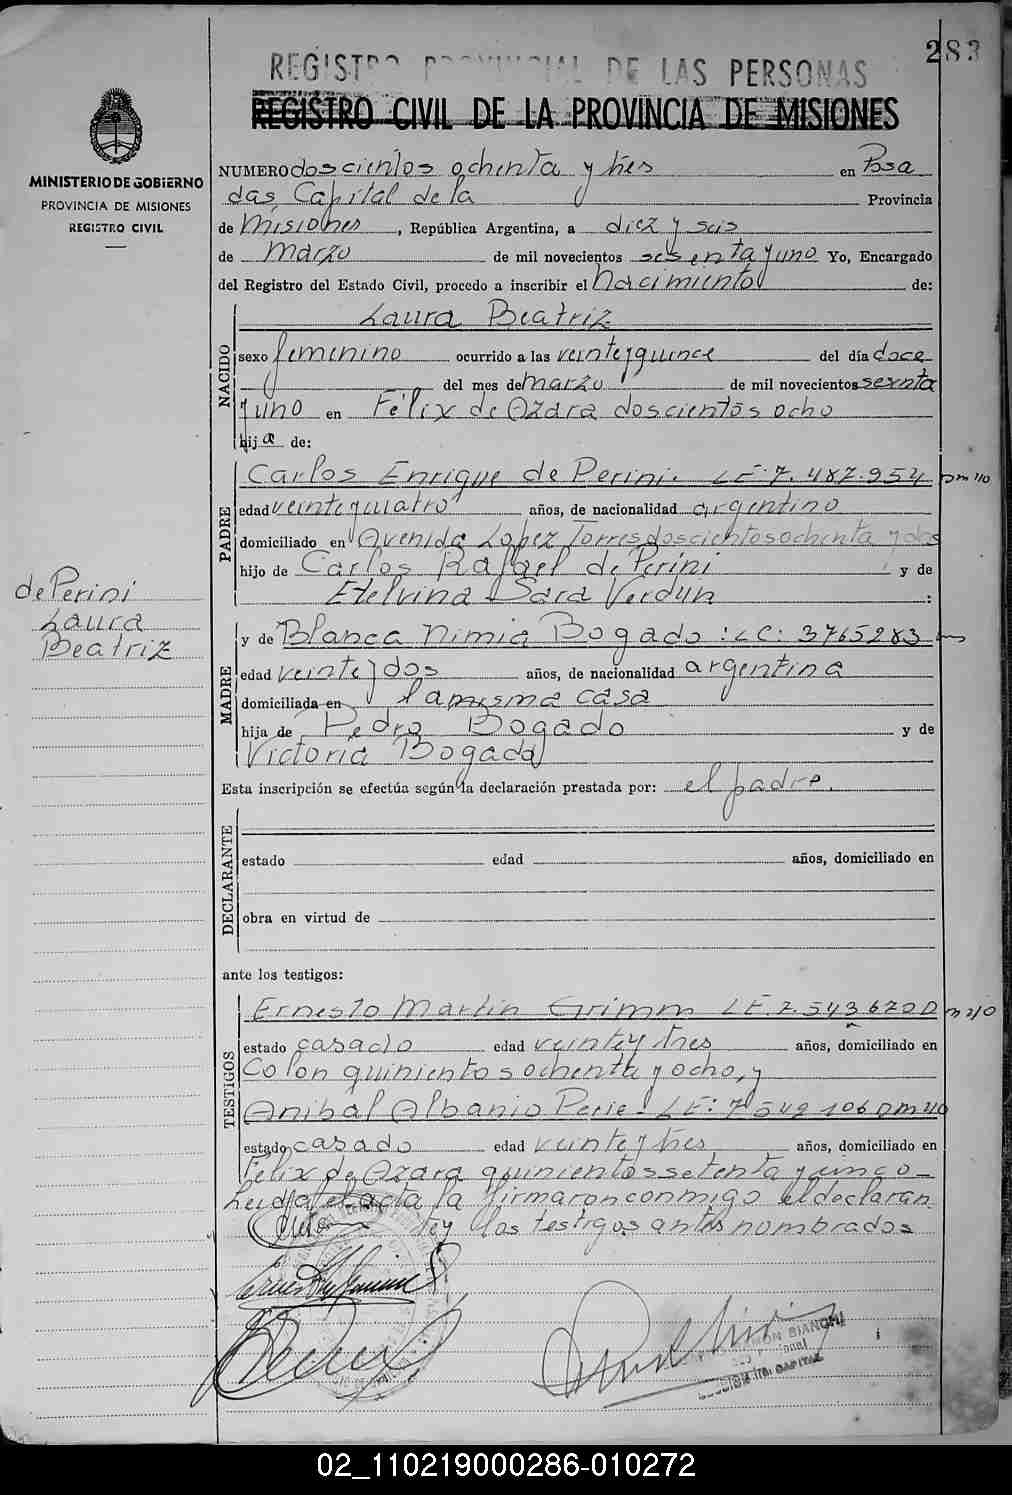 283
REGISTRO PROVINCIAL DE LAS PERSONAS
REGISTRO CIVIL DE LA PROVINCIA DE MISIONES
MINISTERIO DE GOBIERNO
PROVINCIA DE MISIONES
REGISTRO CIVIL
NUMERO doscientos ochenta y tres en Posa
das, Capital de la Provincia
de Misiones, República Argentina, a diez y seis
de Marzo de mil novecientos sesenta y uno Yo, Encargado
del Registro del Estado Civil, procedo a inscribir el Nacimiento de:
NACIDO
Laura Beatriz
sexo femenino ocurrido a las veinte y quince del día doce
del mes de marzo de mil novecientos sesenta
y uno en Félix de Azara doscientos ocho
hija de:
PADRE
Carlos Enrique de Perini. LE 7.487.954 DM 410
edad veinte y cuatro años, de nacionalidad argentino
domiciliado en Avenida Lopez Torres doscientos ochenta y dos
hijo de Carlos Rafael de Perini y de
Etelvina Sara Verdun :
de Perini
Laura
Beatriz
MADRE
y de Blanca Nimia Bogado: LC: 3765283
edad veinte y dos años, de nacionalidad argentina
domiciliada en la misma casa
hija de Pedro Bogado y de
Victoria Bogado
Esta inscripción se efectúa según la declaración prestada por: el padre.
DECLARANTE
estado edad años, domiciliado en
obra en virtud de
ante los testigos:
TESTIGOS
Ernesto Martin Grimm LE. 7.543620 D
estado casado edad veinte y tres años, domiciliado en
Colon quinientos ochenta y ocho, y
Anibal Albanio Perie - LE: 7542106 DM 410
estado casado edad veinte y tres años, domiciliado en
Felix de Azara quinientos setenta y cinco -
Leida el acta la firmaron conmigo el declaran
te y los testigos antes nombrados
BIANCHI
CAPITAL
02_110219000286-010272